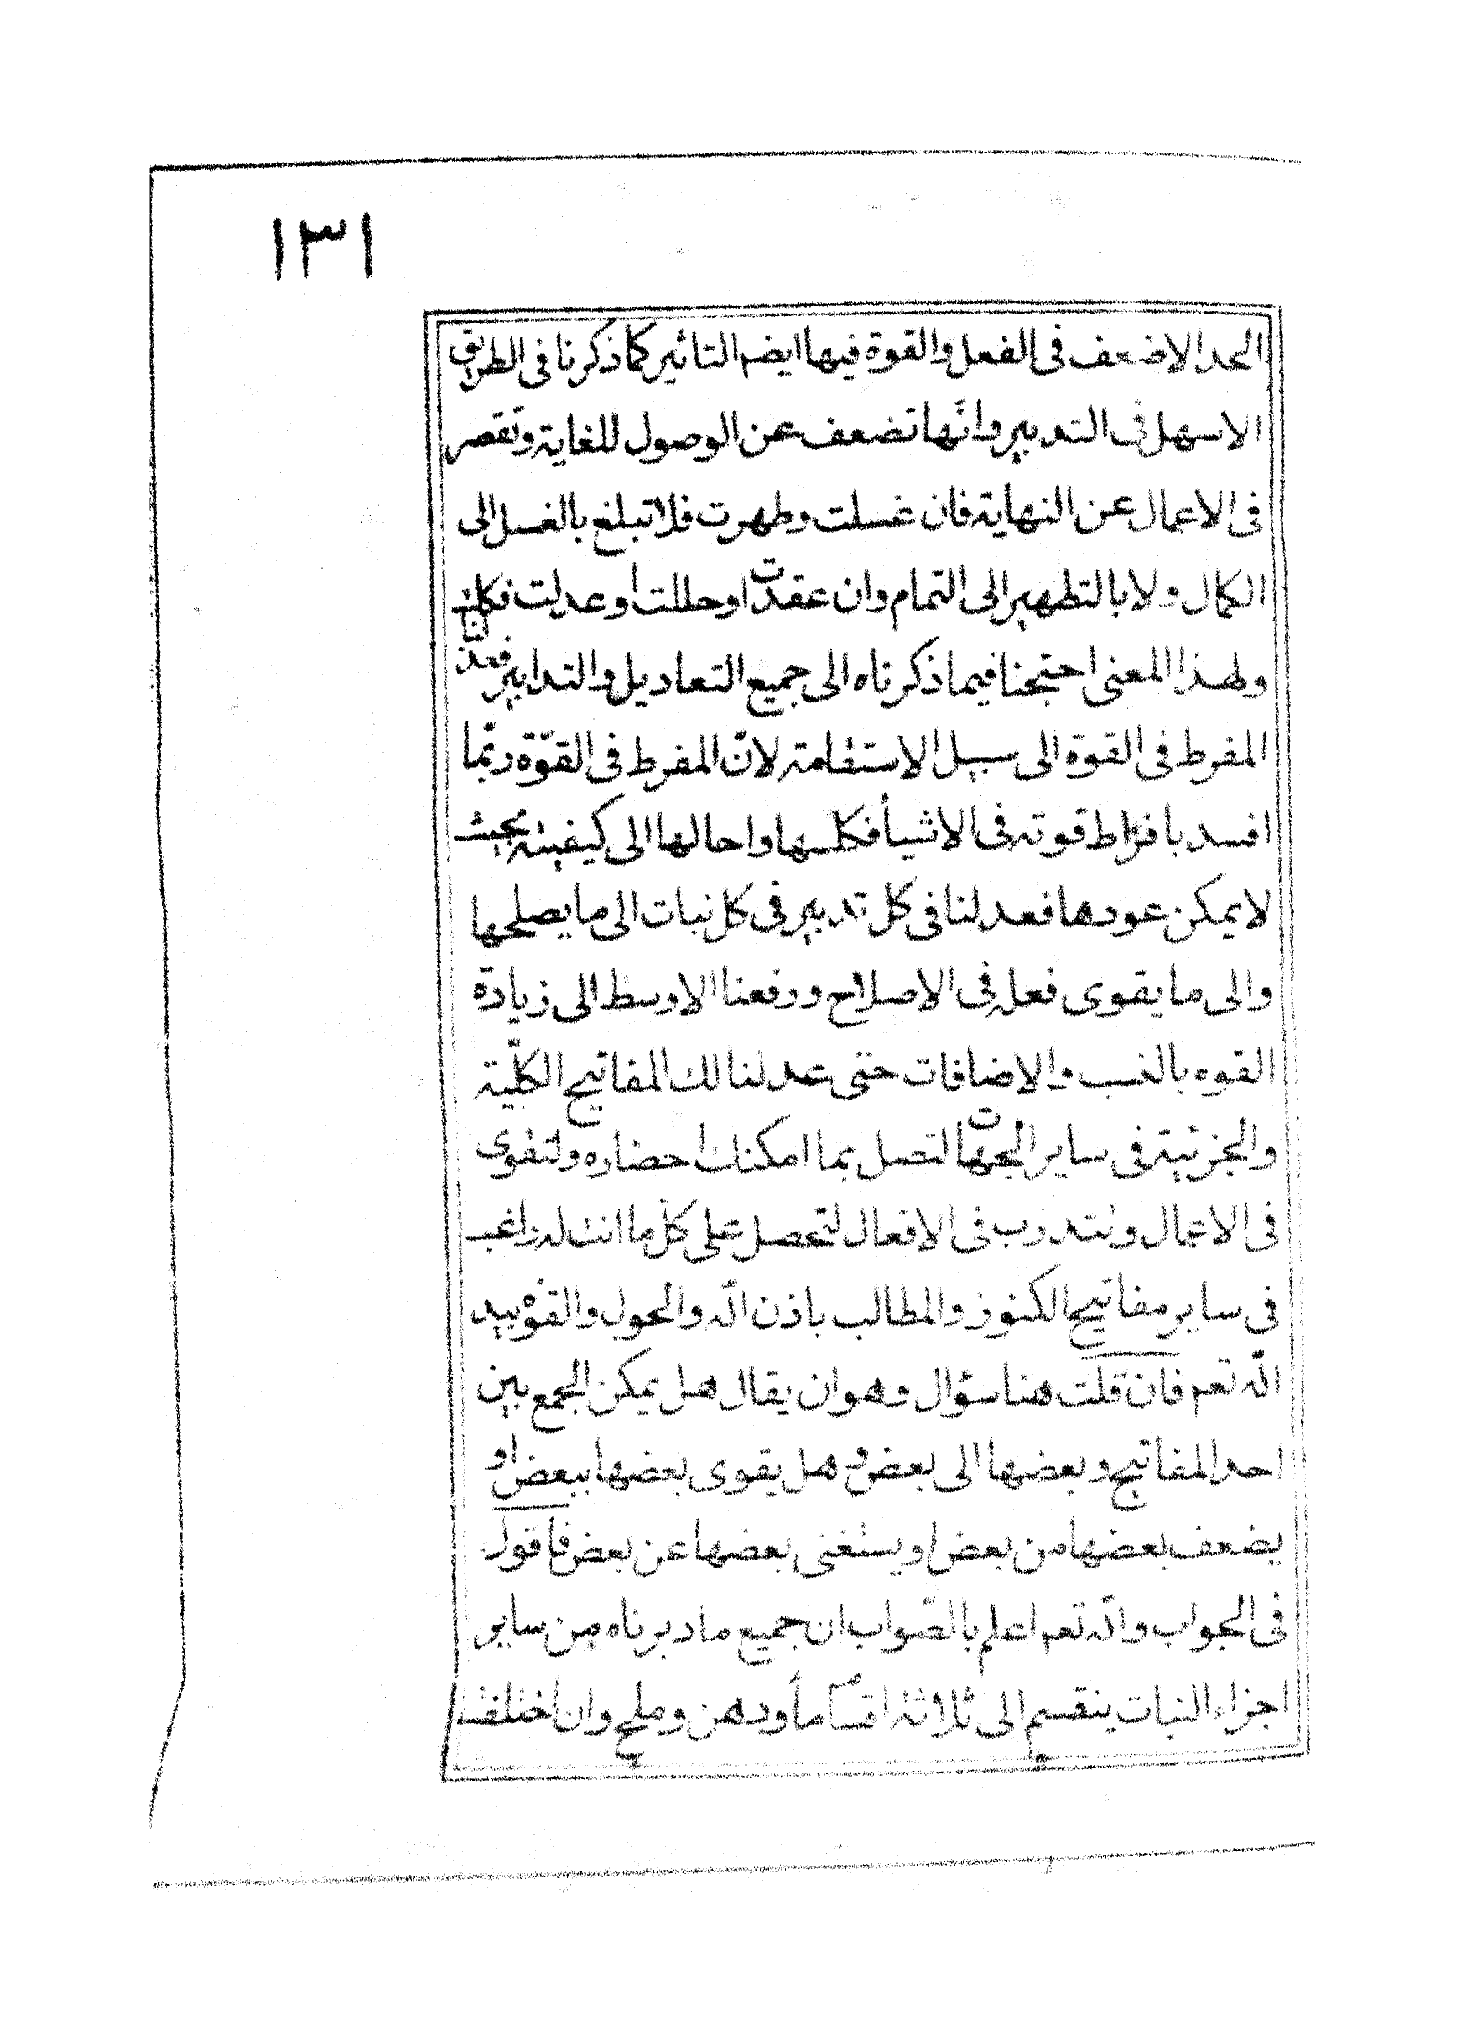 ١٣١
الحد الاضعف فى الفعل والقوة فيها ايضم التاثير كما ذكرنا فى الطريق
الاسهل فى التدبير وانّها تضعف عن الوصول للغاية وتقصر
فى الاعمال عن النهاية فان غسلت وطهرت فلا تبلغ بالغسل الى
الكمال ولا بالتطهير الى التمام وان عقدت او حللت او عدلت فكذلك
ولهذا المعنى احتجنا فيما ذكرناه الى جميع التعاديل والتدابير فعدلنا
المفرط فى القوة الى سبيل الاستقامة لانّ المفرط فى القوّة ربّما
افسد بافراط قوته فى الاشيأ فكلسها واحالها الى كيفيته بحيث
لا يمكن عودها فعدلنا فى كل تدبير فى كل نبات الى ما يصلحها
والى ما يقوى فعله فى الاصلاح ورفعنا الاوسط الى زيادة
القوه بالنسب والاضافات حتى عدلنا لك المفاتيح الكلّية
والجزئية فى ساير الجهات لتصل بما امكنك احضاره ولتقوى
فى الاعمال وتتدرب فى الافعال لتحصل على كلّ ما انت له راغب
فى ساير مفاتيح الكنوز والمطالب باذن الله والحول والقوة بيد
الله تعم فان قلت هنا سؤال وهو ان يقال هل يمكن الجمع بين
احد المفاتيح وبعضها الى بعض وهل يقوى بعضها ببعض او
يضعف بعضها من بعض او يستغنى بعضها عن بعض فاقول
فى الجواب والله تعم اعلم بالصّواب ان جميع ما دبرناه من ساير
اجزاء النبات ينقسم الى ثلاثة اقسام مأ ودهن وملح وان اختلفت